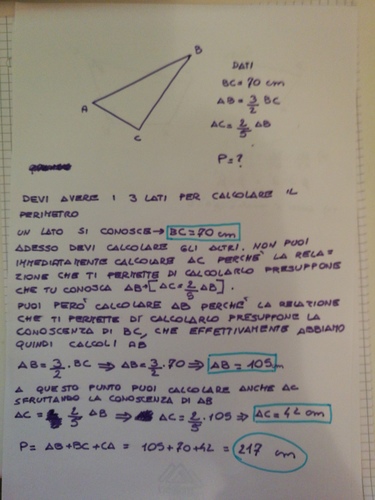 B
A
C
DATI
BC = 70 cm
AB = 3/2 BC
AC = 2/5 AB
P = ?
DEVI AVERE I 3 LATI PER CALCOLARE IL
PERIMETRO
UN LATO SI CONOSCE → BC = 70 cm
ADESSO DEVI CALCOLARE GLI ALTRI. NON PUOI
IMMEDIATAMENTE CALCOLARE AC PERCHÉ LA RELA-
ZIONE CHE TI PERMETTE DI CALCOLARLO PRESUPPONE
CHE TU CONOSCA AB → [AC = 2/5 AB].
PUOI PERÒ CALCOLARE AB PERCHÉ LA RELAZIONE
CHE TI PERMETTE DI CALCOLARLO PRESUPPONE LA
CONOSCENZA DI BC, CHE EFFETTIVAMENTE ABBIAMO
QUINDI CALCOLI AB
AB = 3/2 · BC ⇒ AB = 3/2 · 70 ⇒ AB = 105 cm
A QUESTO PUNTO PUOI CALCOLARE ANCHE AC
SFRUTTANDO LA CONOSCENZA DI AB
AC = 2/5 AB ⇒ AC = 2/5 · 105 ⇒ AC = 42 cm
P = AB + BC + CA = 105 + 70 + 42 = 217 cm